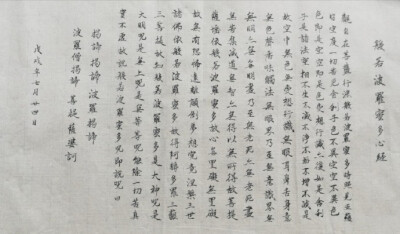 般若波羅蜜多心經
觀自在菩薩行深般若波羅蜜多時照見五蘊
皆空度一切苦厄舍利子色不異空空不異色
色即是空空即是色受想行識亦復如是舍利
子是諸法空相不生不滅不垢不淨不增不減是
故空中無色無受想行識無眼耳鼻舌身意
無色聲香味觸法無眼界乃至無意識界無
無明亦無無明盡乃至無老死亦無老死盡
無苦集滅道無智亦無得以無所得故菩提
薩埵依般若波羅蜜多故心無罣礙無罣礙
故無有恐怖遠離顛倒夢想究竟涅槃三世
諸佛依般若波羅蜜多故得阿耨多羅三藐
三菩提故知般若波羅蜜多是大神咒是
大明咒是無上咒是無等等咒能除一切苦真
實不虛故說般若波羅蜜多咒即說咒曰
揭諦 揭諦 波羅揭諦
波羅僧揭諦 菩提薩婆訶
戊戌年七月廿四日